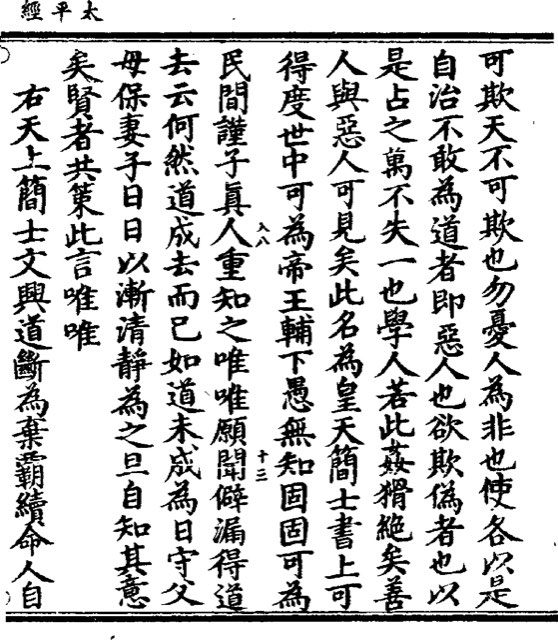 太平經
可欺天不可欺也勿憂人為非也使各以是
自治不敢為道者即惡人也欲欺偽者也以
是占之萬不失一也學人若此姦猾絕矣善
人與惡人可見矣此名為皇天簡士書上可
得度世中可為帝王輔下愚無知固固可為
民間謹子真人重知之唯唯願聞僻漏得道
入八
十三
去云何然道成去而已如道未成為日守父
母保妻子日日以漸清靜為之旦自知其意
矣賢者共策此言唯唯
右天上簡士文興道斷為棄霸續命人自